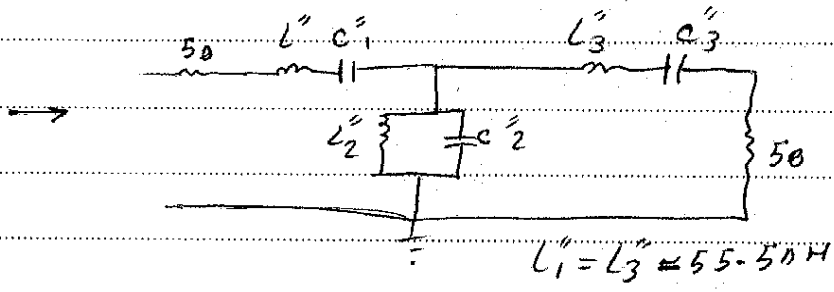 50 L" C"1 L"3 C"3
L"2 C"2 50
L"1 = L"3 = 55.5nH